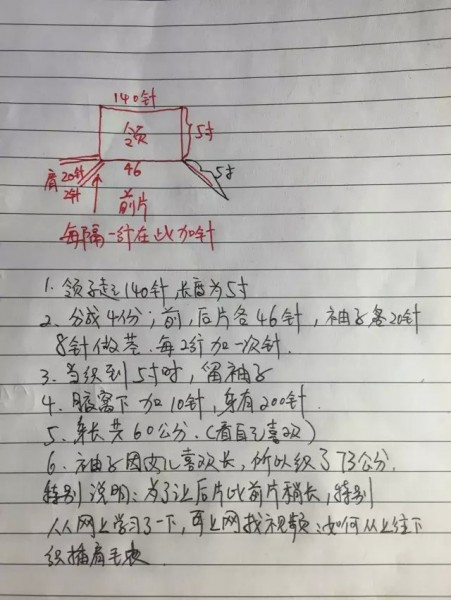 140针
领
5寸
46
5寸
肩 20针
2针
前片
每隔一针在此加针
1. 领子起 140针 长度为5寸
2. 分成4份；前，后片各46针，袖子各20针
8针做茎. 每2针加一次针.
3. 当织到5寸时，留袖子
4. 腋窝下加10针，身有200针.
5. 身长共60公分.（看自己喜欢）
6. 袖子因女儿喜欢长，所以织了73公分.
特别说明：为了让后片比前片稍长，特别
从网上学习了一下，可上网找视频：如何从上往下
织插肩毛衣.